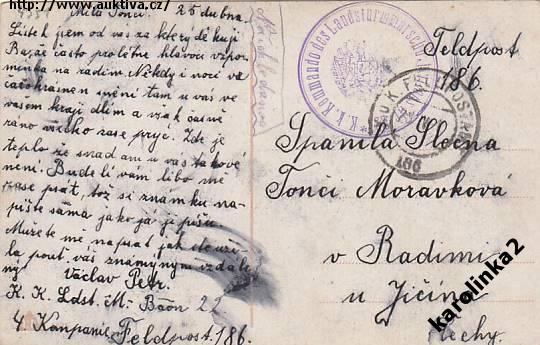 http://www.auktiva.cz/
Milá Tončí. 25 dubna.
Lístek jsem od vás za který děkuji
Ba, že často proletne hlavou vzpo-
mínka na radim. Někdy i noci ve
krásnem snění tam u vás ve
vašem kraji dlím a však časně
ráno vsecko zase pryč. Zde je
teplo že snad ani u vás takové
není. Bude li vám libo mě
zase psát, tož si známku na-
pište sáma jako já ji píšu.
Muzete mě napsat jak ste uži-
la pout, váš známy nyní vzdále-
ný Václav Petr.
K. K. Ldst. M. Baon 22
4 Kompanie Feldpost 186.
K. k. Kommando des Landsturmmarsch
K.u.K. FELDPOSTAMT
186
Feldpost
186.
Spanilá Slečna
Tončí Moravková
v Radimi
u Jičína
Čechy.
karolinka2